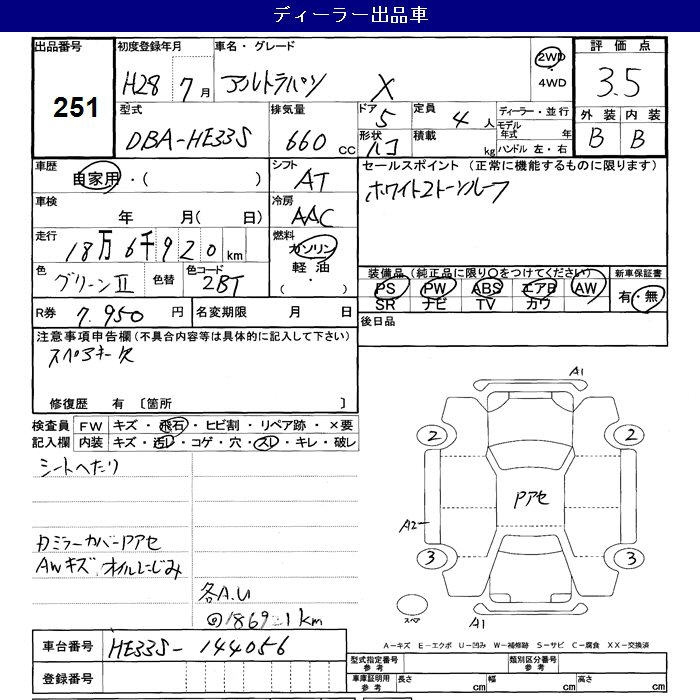 ディーラー出品車
出品番号 251
初度登録年月 H28 7月
車名・グレード アルトラパン X
2WD・4WD
評価点 3.5
型式 DBA-HE33S
排気量 660 CC
ドア 5
形状 ハコ
定員 4人
積載 kg
ディーラー・並行
モデル年式 年
ハンドル 左・右
外装 B 内装 B
車歴 自家用・( )
シフト AT
セールスポイント (正常に機能するものに限ります)
ホワイト2トーンルーフ
車検 年 月( 日)
冷房 AAC
走行 18万6千920km
燃料 ガソリン 軽油 ( ・ )
色 グリーンII 色替 色コード 2BT
装備品(純正品に限り○をつけてください) 新車保証書
PS PW ABS エアB AW 有・無
SR ナビ TV カワ
R券 7.950円 名変期限 月 日
後日品
注意事項申告欄(不具合内容等は具体的に記入して下さい)
スペアキー欠
修復歴 有 〔箇所 〕
検査員記入欄
FW キズ・飛石・ヒビ割・リペア跡・×要
内装 キズ・汚レ・コゲ・穴・スレ・キレ・破レ
シートへたり
カミラーカバーPアセ
AWキズ オイルにじみ
各A.U
A1
2 2
Pアセ
A2
3 3
スペア
A1
車台番号 HE33S-144056
登録番号
A-キズ E-エクボ U-凹み W-補修跡 S-サビ C-腐食 XX-交換済
型式指定番号参考 類別区分番号参考
車庫証明用参考 長さ cm 幅 cm 高さ cm